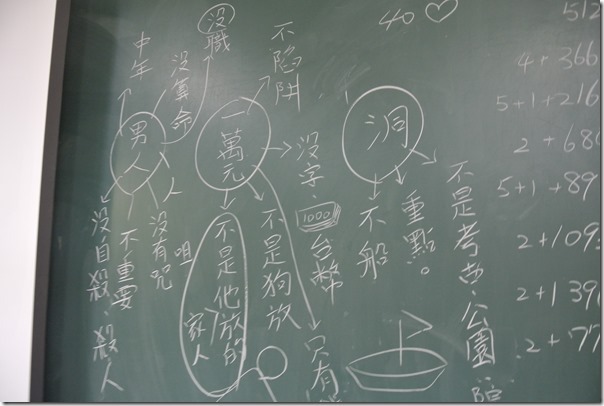 中年
没算命
没職
男人
没自殺、殺人
不重要
没有咒
人
咀
一萬元
不陷阱
没字、
1000
台幣
不是狗放
不是他放的
家人
只有
40♡
洞
不船
重點。
不是考古、公園
512
4+366
5+1+216
2+68
5+1+89
2+109
2+139
2+77